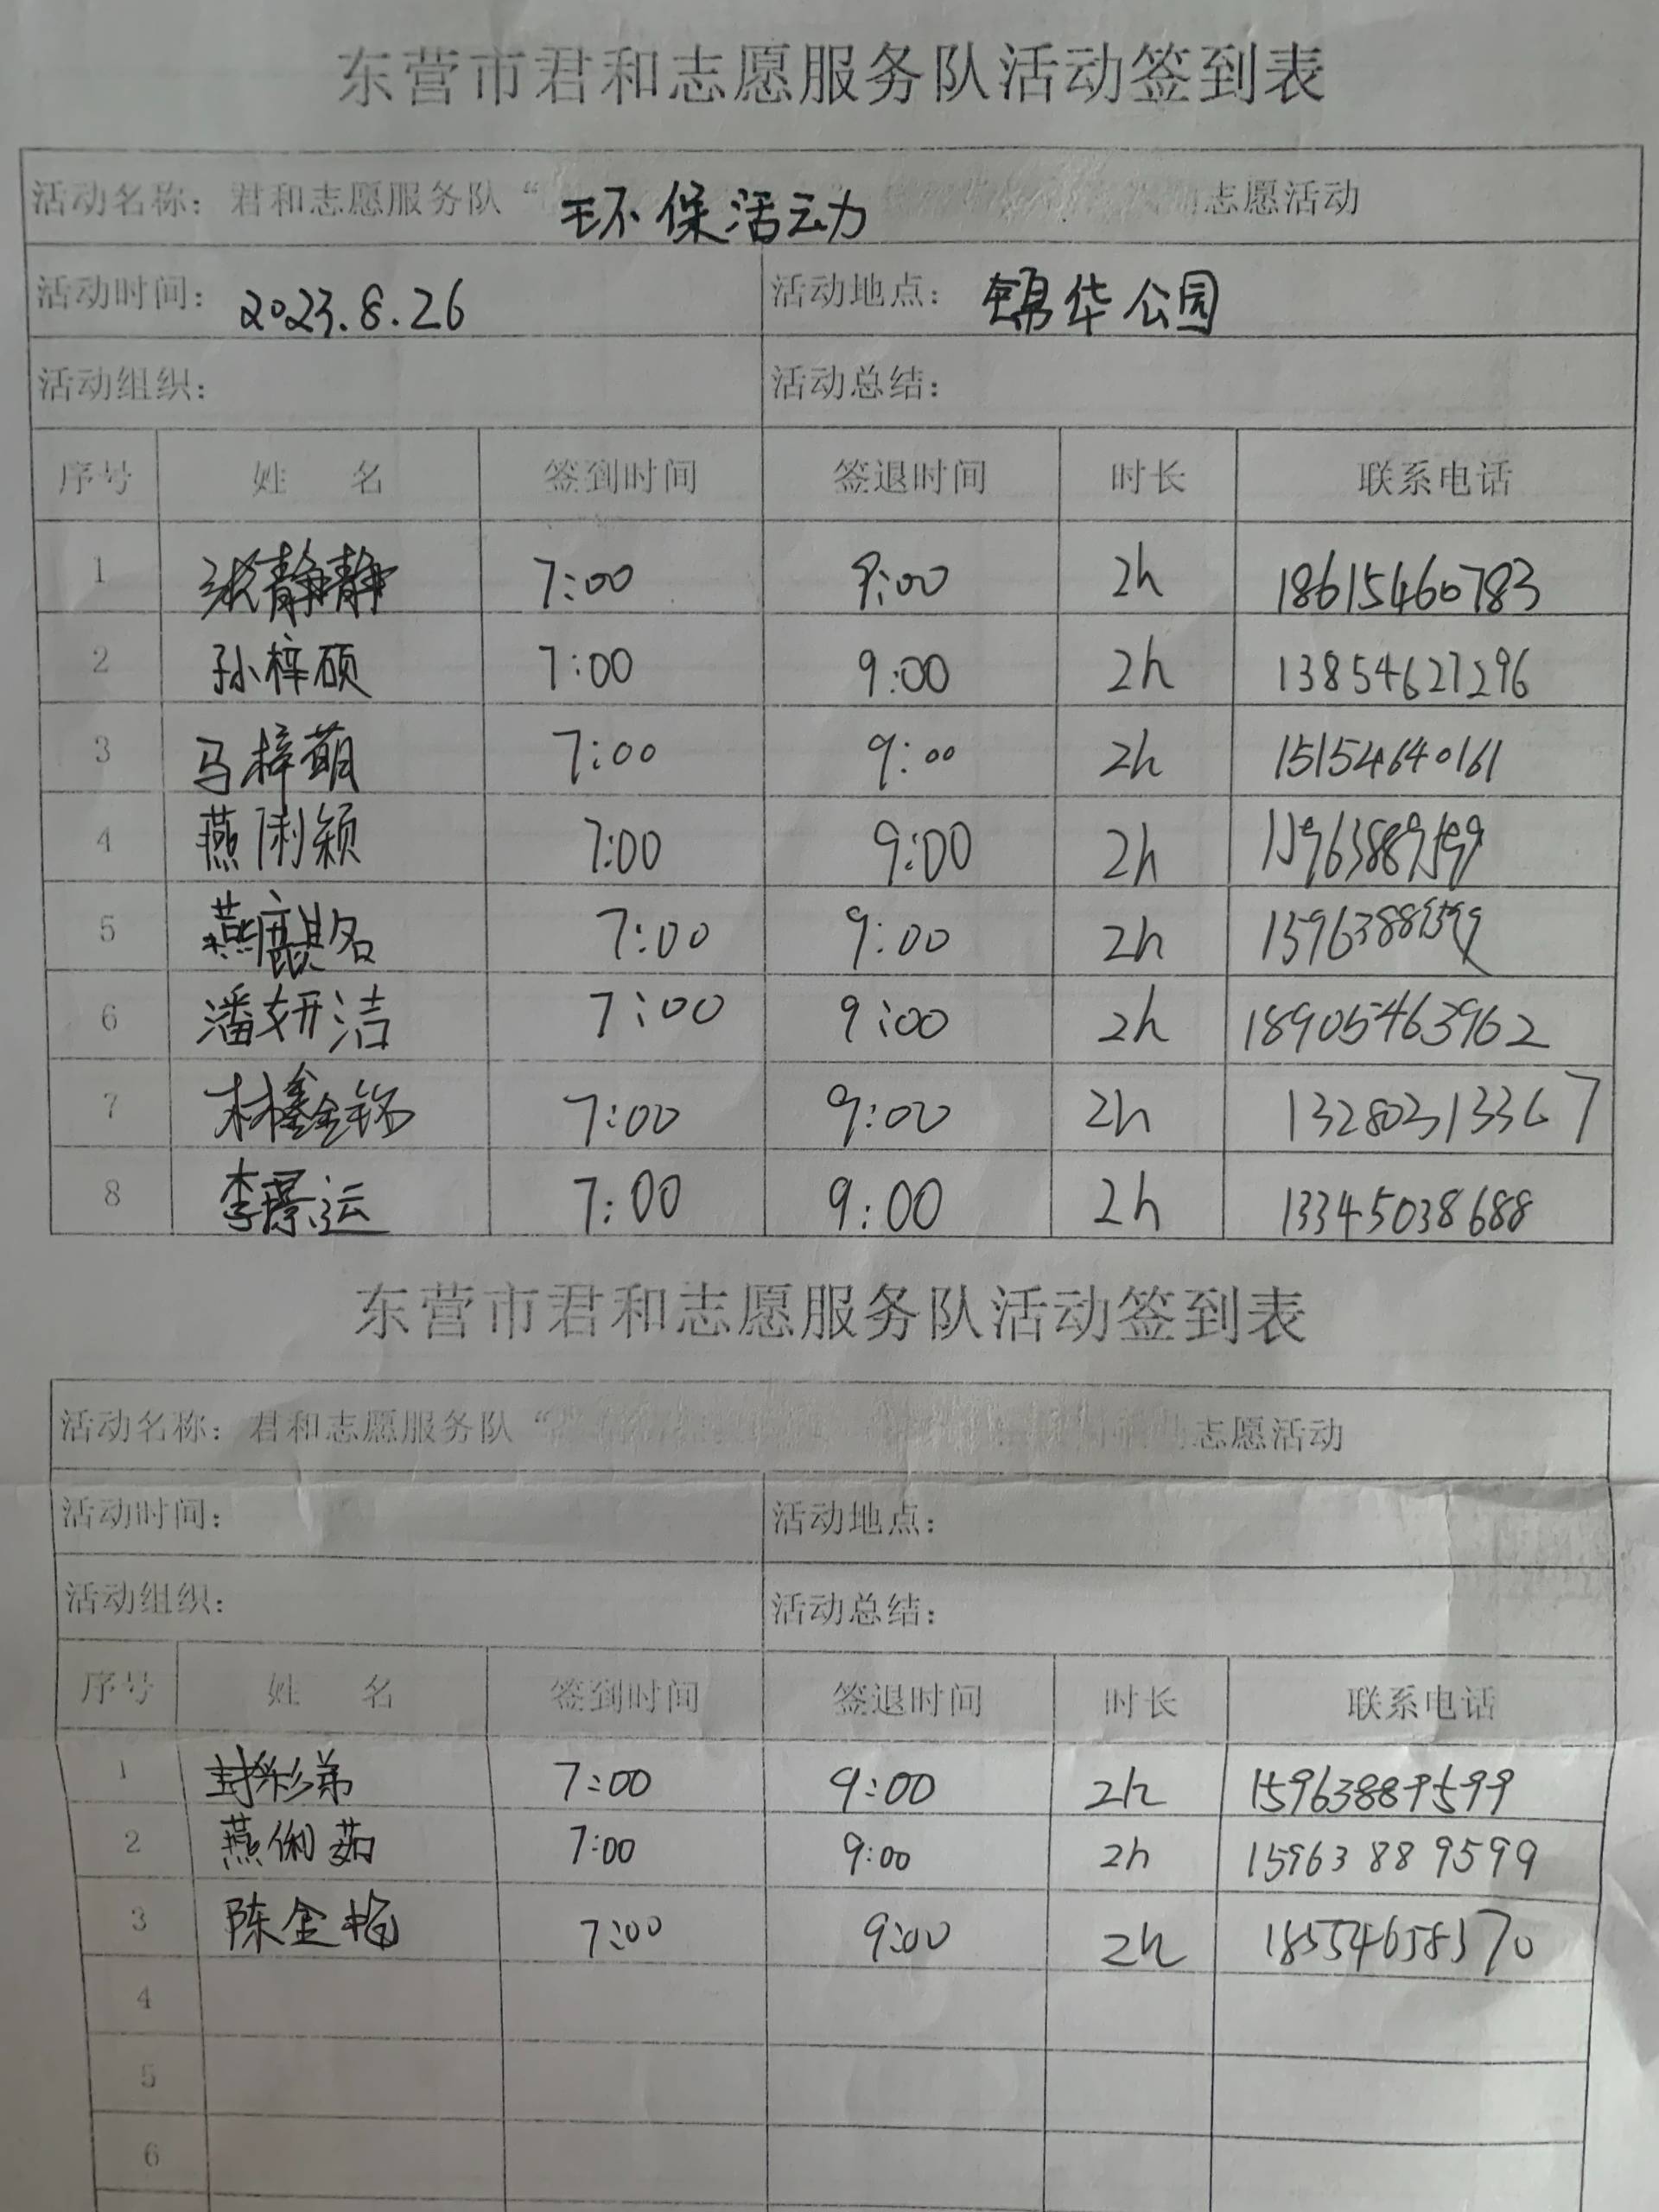 东营市君和志愿服务队活动签到表
活动名称：君和志愿服务队“环保活动 志愿活动
活动时间：2023.8.26 活动地点：锦华公园
活动组织： 活动总结：
序号 姓 名 签到时间 签退时间 时长 联系电话
1 张静静 7:00 9:00 2h 18615460783
2 孙梓硕 7:00 9:00 2h 13854627296
3 马梓萌 7:00 9:00 2h 15154640161
4 燕俐颖 7:00 9:00 2h 15963889599
5 燕麒名 7:00 9:00 2h 15963889599
6 潘妍洁 7:00 9:00 2h 18905463962
7 林鑫铭 7:00 9:00 2h 13280313367
8 李璟运 7:00 9:00 2h 13345038688
东营市君和志愿服务队活动签到表
活动名称：君和志愿服务队“ 志愿活动
活动时间： 活动地点：
活动组织： 活动总结：
序号 姓 名 签到时间 签退时间 时长 联系电话
1 封彩弟 7:00 9:00 2h 15963889599
2 燕俐茹 7:00 9:00 2h 15963889599
3 陈金梅 7:00 9:00 2h
4
5
6